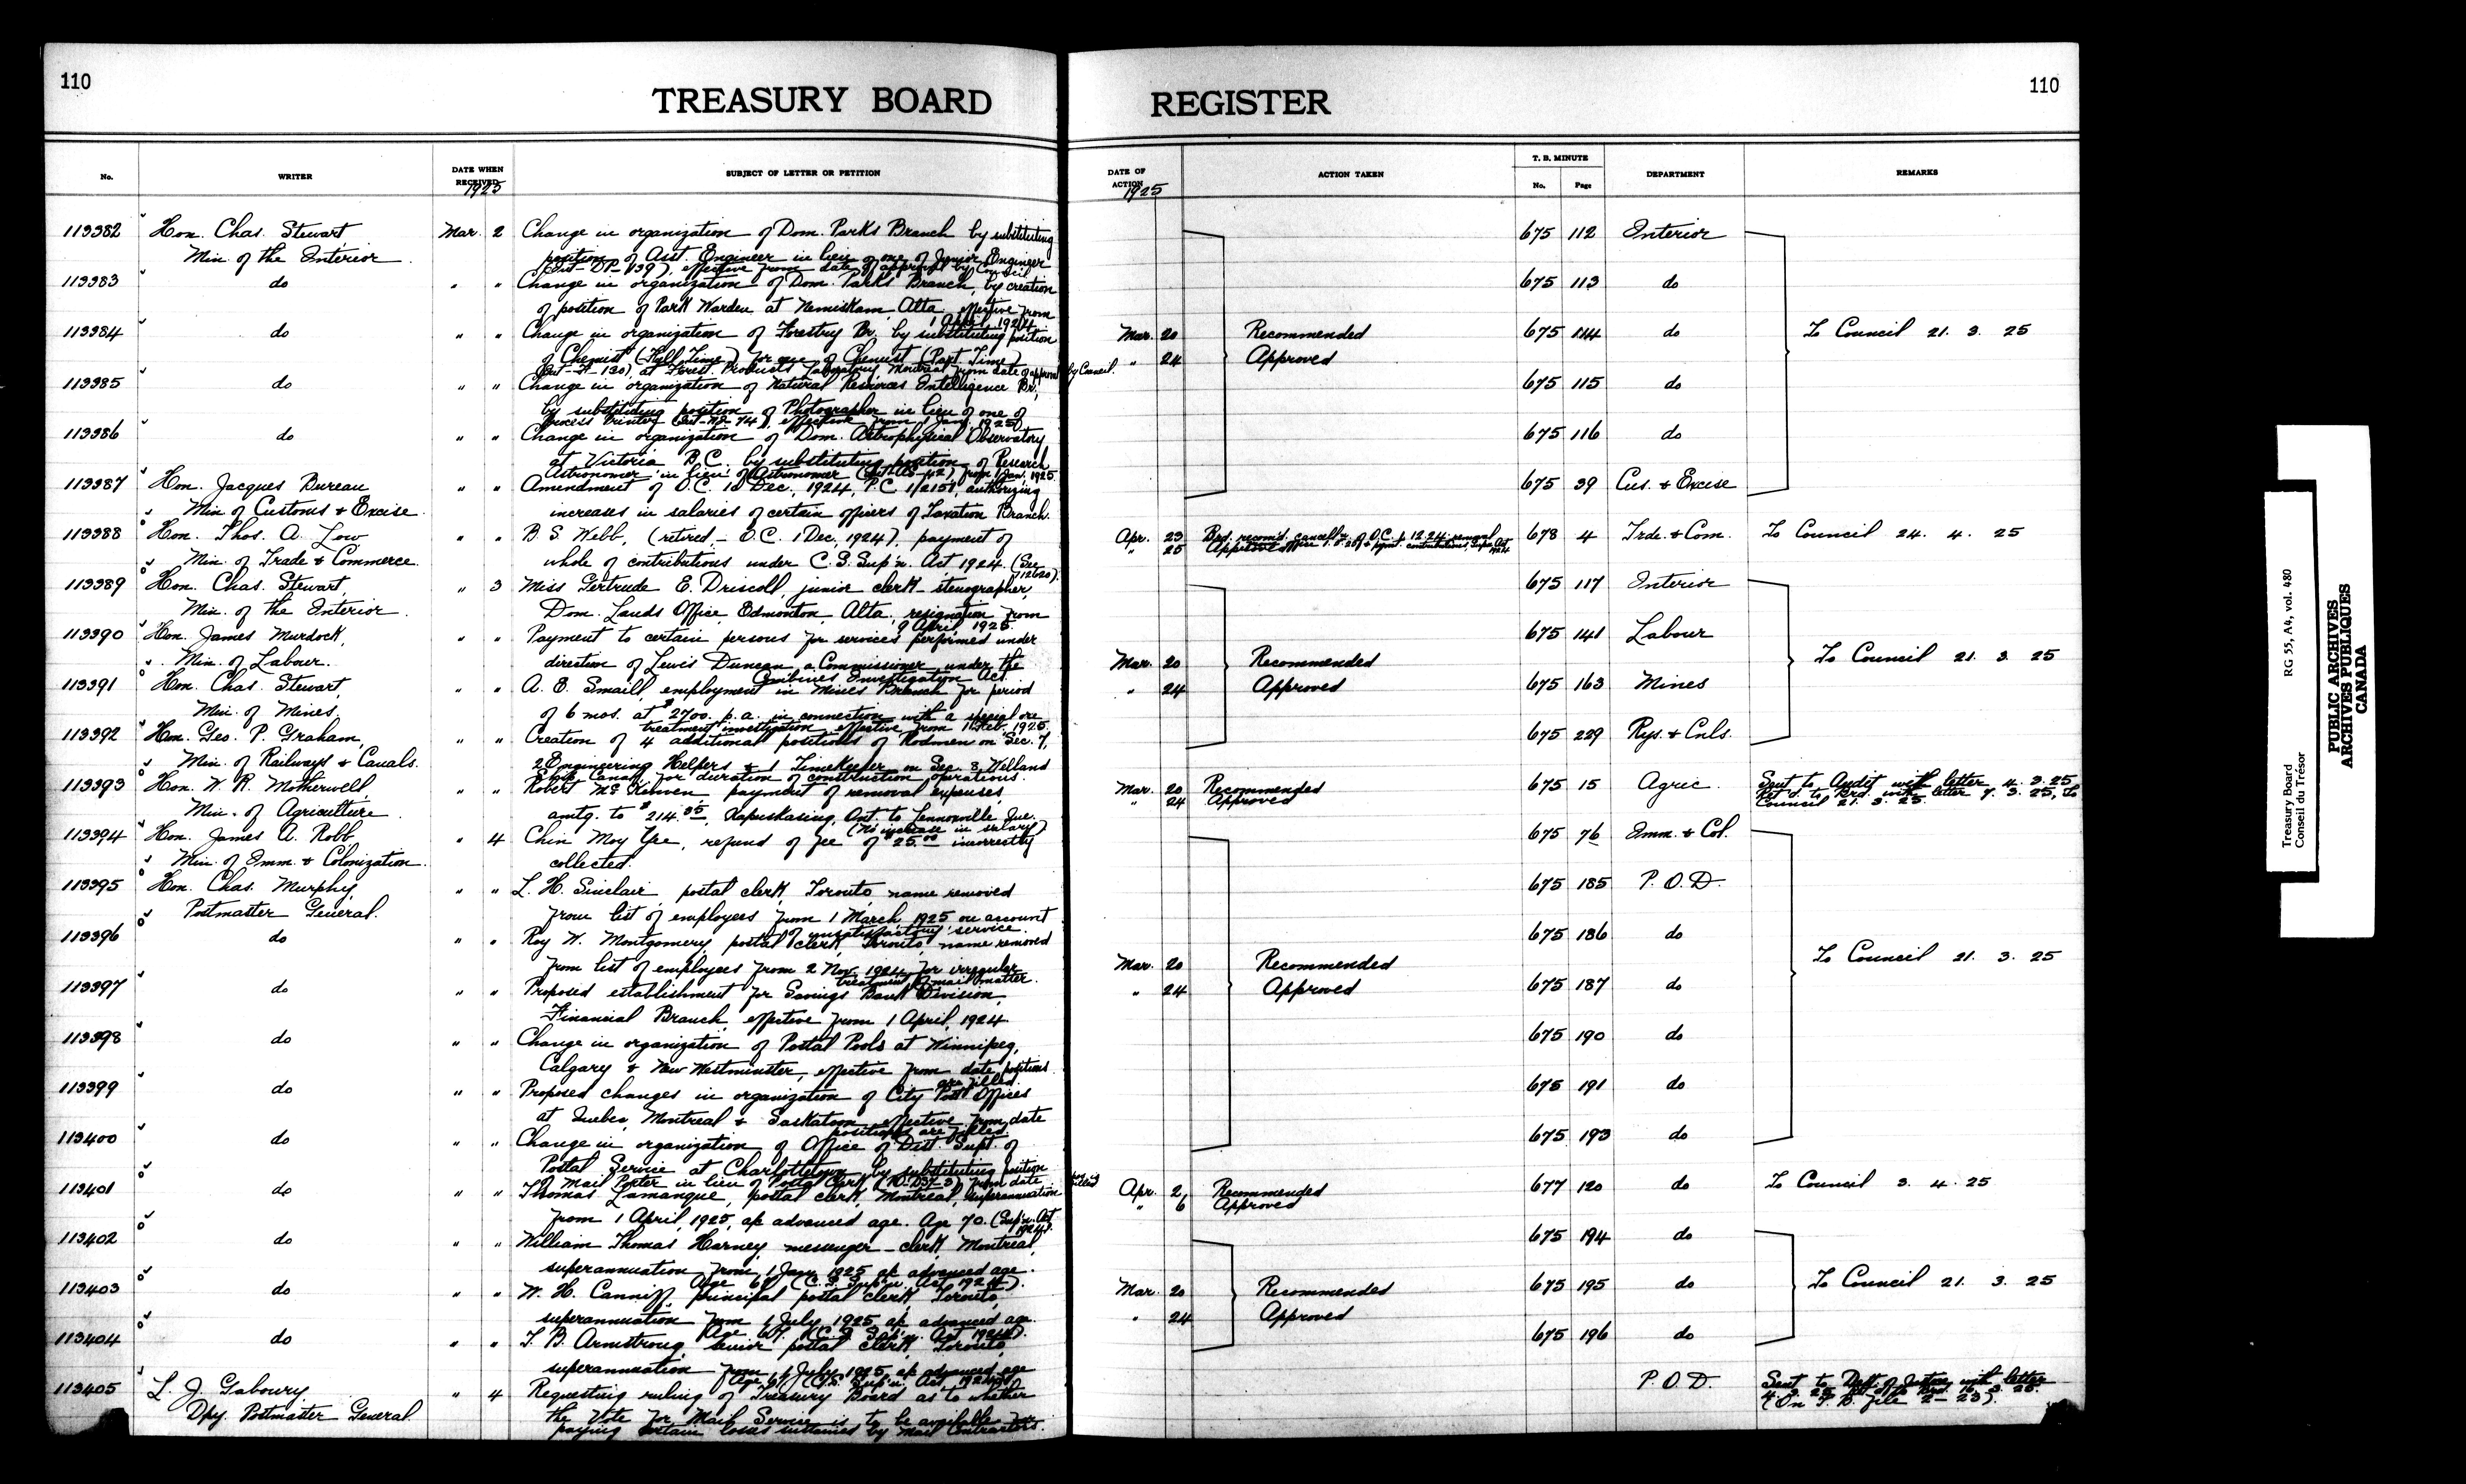 110
TREASURY BOARD
No.
WRITER
DATE WHEN RECEIVED
1925
SUBJECT OF LETTER OR PETITION
113382 Hon. Chas. Stewart Mar. 2 Change in organization of Dom. Parks Branch by substituting
Min. of the Interior position of Asst. Engineer in lieu of one of Junior Engineer
(Int-DP-139), effective from date of approval by Council
113383 do " " Change in organization of Dom. Parks Branch, by creation
of position of Park Warden at Nemiskam, Alta, effective from
1 April 1924
113384 do " " Change in organization of Forestry Br. by substituting position
of Chemist (Full Time) for one of Chemist (Part Time)
(Int-F-130) at Forest Products Laboratory Montreal from date of approval by Council.
113385 do " " Change in organization of Natural Resources Intelligence Br.,
by substituting position of Photographer in lieu of one of
Process Printer (Int-NR-74), effective from 1 Jany. 1925
113386 do " " Change in organization of Dom. Astrophysical Observatory
at Victoria B.C. by substituting position of Research
Astronomer in lieu of Astronomer from 1 Jan. 1925
113387 Hon. Jacques Bureau " " Amendment of O.C. Dec., 1924, P.C. authorizing
Min. of Customs & Excise increases in salaries of certain officers of Taxation Branch.
113388 Hon. Thos. A. Low " " B. S. Webb, (retired - O.C. 1 Dec, 1924), payment of
Min. of Trade & Commerce whole of contributions under C.S. Sup'n. Act 1924. (See
112620).
113389 Hon. Chas. Stewart, " 3 Miss Gertrude E. Driscoll, junior clerk-stenographer,
Min. of the Interior Dom. Lands Office, Edmonton, Alta, resignation from
9 April 1925.
113390 Hon. James Murdock, " " Payment to certain persons for services performed under
Min. of Labour. direction of Lewis Duncan a Commissioner under the
Combines Investigation Act.
113391 Hon. Chas. Stewart, " " A. E. Smaill, employment in Mines Branch for period
Min. of Mines, of 6 mos. at $2700. p.a. in connection with a special ore
treatment investigation, effective from Feb. 1925
113392 Hon. Geo. P. Graham, " " Creation of 4 additional positions of Rodmen on Sec. 7,
Min. of Railways & Canals. 2 Engineering Helpers & 1 Timekeeper on Sec. 8, Welland
Ship Canal, for duration of construction operations.
113393 Hon. W. R. Motherwell " " Robert payment of removal expenses,
Min. of Agriculture amtg. to $214.35, Kapuskasing, Ont. to Lennoxville Que.
(No increase in salary)
113394 Hon. James A. Robb " 4 Chin Moy Yee, refund of fee of $25.00 incorrectly
Min. of Imm. & Colonization collected.
113395 Hon. Chas. Murphy " " L. H. Sinclair, postal clerk, Toronto, name removed
Postmaster General. from list of employees from 1 March 1925 on account
of unsatisfactory service.
113396 do " " Roy W. Montgomery, postal clerk, Toronto name removed
from list of employees from 2 Nov. 1924, for irregular
treatment of mail matter.
113397 do " " Proposed establishment for Savings Bank Division,
Financial Branch, effective from 1 April, 1924.
113398 do " " Change in organization of Postal Pools at Winnipeg,
Calgary & New Westminster, effective from date positions
are filled.
113399 do " " Proposed changes in organization of City Post Offices
at Quebec, Montreal & Saskatoon effective from date
positions are filled.
113400 do " " Change in organization of Office of Dist. Supt. of
Postal Service at Charlottetown by substituting position
of Mail Porter in lieu of Postal Clerk from date
113401 do " " Thomas Lamanque, postal clerk, Montreal, superannuation
from 1 April, 1925, a/c advanced age. Age 70. (Sup'n. Act
1924).
113402 do " " William Thomas Harney, messenger-clerk, Montreal,
superannuation from 1 Jany 1925 a/c advanced age.
(C.S. Sup'n. Act 1924).
113403 do " " W. H. Canniff, principal postal clerk, Toronto,
superannuation from 1 July 1925, a/c advanced age.
Age 67. (C.S. Sup'n. Act 1924).
113404 do " " T. B. Armstrong, senior postal clerk, Toronto,
superannuation from 1 July 1925, a/c advanced age
(C.S. Sup'n. Act 1924)
113405 L. J. Gaboury " 4 Requesting ruling of Treasury Board as to whether
Dpy. Postmaster General. the Vote for Mail Service is to be available for
paying certain losses sustained by Mail Contractors.
REGISTER
110
DATE OF ACTION
1925
ACTION TAKEN
T. B. MINUTE
No.
Page
DEPARTMENT
REMARKS
675 112 Interior
675 113 do
Mar. 20 Recommended 675 114 do To Council 21. 3. 25
" 24 Approved
675 115 do
675 116 do
675 39 Cus. & Excise
Apr. 23 678 4 Trde. & Com. To Council 24. 4. 25
" 25 Approved
675 117 Interior
675 141 Labour
Mar. 20 Recommended To Council 21. 3. 25
" 24 Approved 675 163 Mines
675 229 Rys. & Cnls.
Mar. 20 Recommended 675 15 Agric. Sent to Audit with letter 4. 3. 25
" 24 Approved Ret'd. to Brd. with letter 7. 3. 25, To
Council 21. 3. 25.
675 76 Imm. & Col.
675 185 P.O.D.
675 186 do
Mar. 20 Recommended To Council 21. 3. 25
" 24 Approved 675 187 do
675 190 do
675 191 do
675 193 do
Apr. 2 Recommended 677 120 do To Council 3. 4. 25
" 6 Approved
675 194 do
Mar. 20 Recommended 675 195 do To Council 21. 3. 25
" 24 Approved
675 196 do
P.O.D. Sent to Dept. of Justice with letter
4. 3. 25
(On T. B. file 2-23).
Treasury Board
Conseil du Trésor
RG 55, A4, vol. 480
PUBLIC ARCHIVES
ARCHIVES PUBLIQUES
CANADA